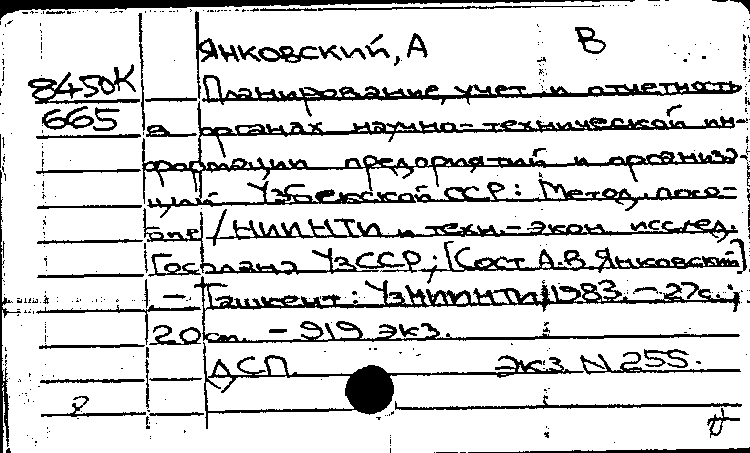 Янковский, А В
8450К
665
Планирование, учет и отчетность
в органах научно-технической ин-
формации предприятий и организа-
ций Узбекской ССР: Метод. посо-
бие / НИИНТИ и техн.-экон. исслед.
Госплана УзССР; [Сост. А.В. Янковский]
– Ташкент: УзНИИНТИ, 1983. – 27с.;
20см. – 919 экз.
ДСП. экз. N 255.